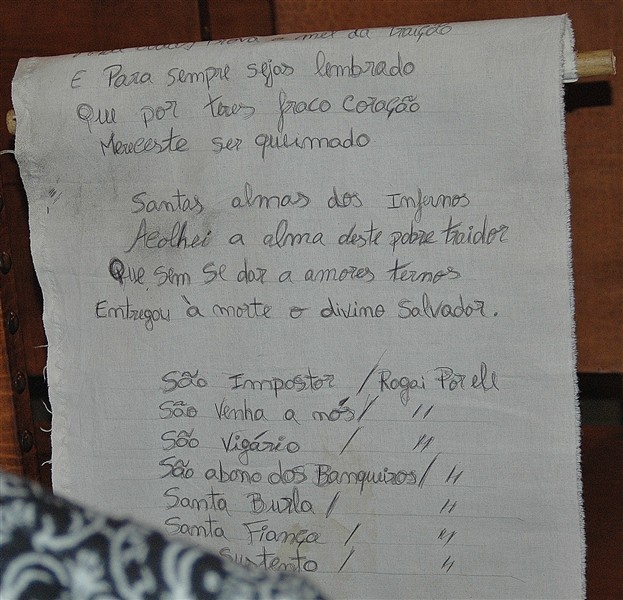 mel da traição
E Para sempre sejas lembrado
Que por teres fraco coração
Mereceste ser queimado
Santas almas dos Infernos
Acolhei a alma deste pobre traidor
Que sem se dar a amores ternos
Entregou à morte o divino Salvador.
São Impostor / Rogai Por ele
São Venha a nós / "
São Vigário / "
São abono dos Banqueiros / "
Santa Burla / "
Santa Fiança / "
Sustento / "